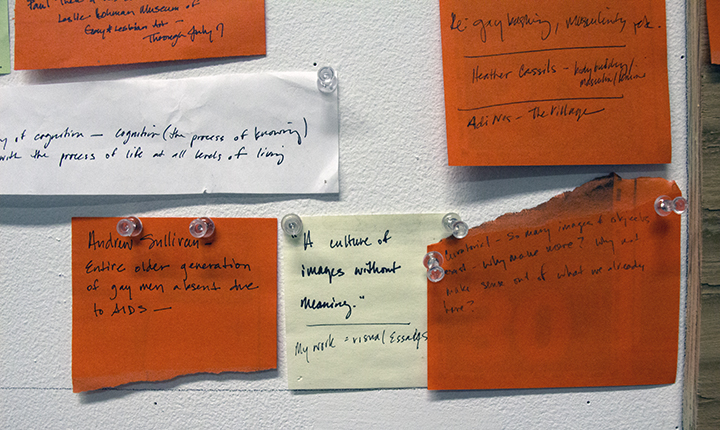 Leslie Lohman Museum of
Gay & Lesbian Art —
Through July 7
Re: gay bashing, masculinity
Heather Cassils - bodybuilding/
masculine/
Adi Nes - The Village
of cognition — cognition (the process of knowing)
with the process of life at all levels of living
Andrew Sullivan -
Entire older generation
of gay men absent due
to AIDS —
"A culture of
images without
meaning."
My work = visual Essays
Curatorial - So many images & objects
exist - why make more? Why not
make sense out of what we already
have?